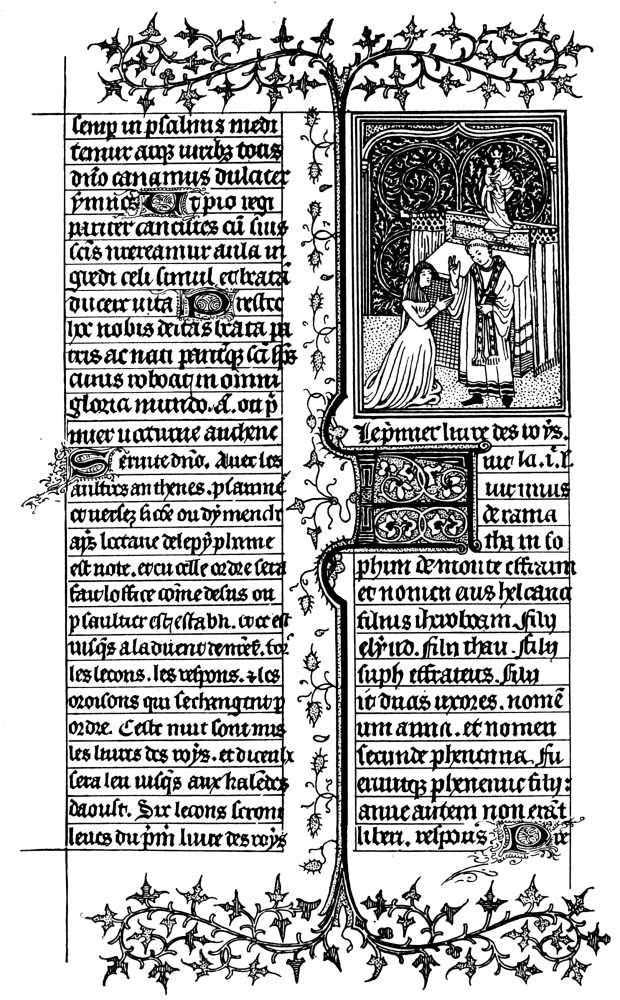 semp in psalmis medi
temur atq; viribz totis
dño canamus dulciter
ymnos Ut pio regi
pariter canentes cũ suis
scĩs mereamur aula in
gredi celi simul et beatã
ducere vita Prestet
hec nobis deitas beata pa
tris ac nati
cuius reboat in omni
gloria mundo. A. ou p̃
mier nocturne anthene
Seruite dño. Auec les
aultres anthenes. psaumes
et versez ou dymenche
apř loctaue
est note. et en celle ordre sera
fait loffice cõme desus ou
psaultier est establi. et ce est
iusq̃s a laduent
les lecons. les respons. et les
oroisons qui se changent p
ordre. Ceste nuit sont mis
les liures des roys. et diceulx
sera leu iusq̃s aux kalẽdes
daoust. Six lecons seront
leues du p̃m liure des roys
Le p̃mier liure des roys.
Fuit vir vnus
de rama
tha in so
phim de monte effraim
et nomen eius helcana
filius iheroboam. filii
elyud. filii thau. filii
suph effrateus. 
duas uxores. nomẽ
uni anna. et nomen
secunde phenenna. Fu
eruntq; phenenne filii:
anne autem non erãt
liberi. respons Pre